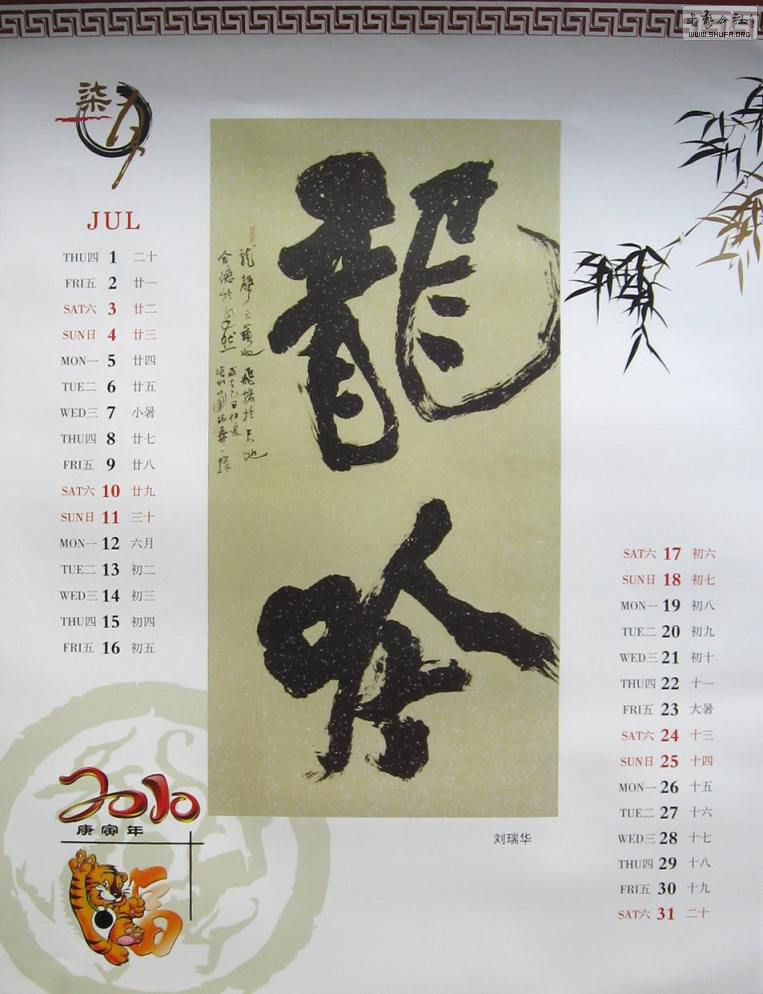 书象会社
www.SHUFA.ORG
柒月
JUL
THU四 1 二十
FRI五 2 廿一
SAT六 3 廿二
SUN日 4 廿三
MON一 5 廿四
TUE二 6 廿五
WED三 7 小暑
THU四 8 廿七
FRI五 9 廿八
SAT六 10 廿九
SUN日 11 三十
MON一 12 六月
TUE二 13 初二
WED三 14 初三
THU四 15 初四
FRI五 16 初五
龍吟
刘瑞华
SAT六 17 初六
SUN日 18 初七
MON一 19 初八
TUE二 20 初九
WED三 21 初十
THU四 22 十一
FRI五 23 大暑
SAT六 24 十三
SUN日 25 十四
MON一 26 十五
TUE二 27 十六
WED三 28 十七
THU四 29 十八
FRI五 30 十九
SAT六 31 二十
2010
庚寅年
福